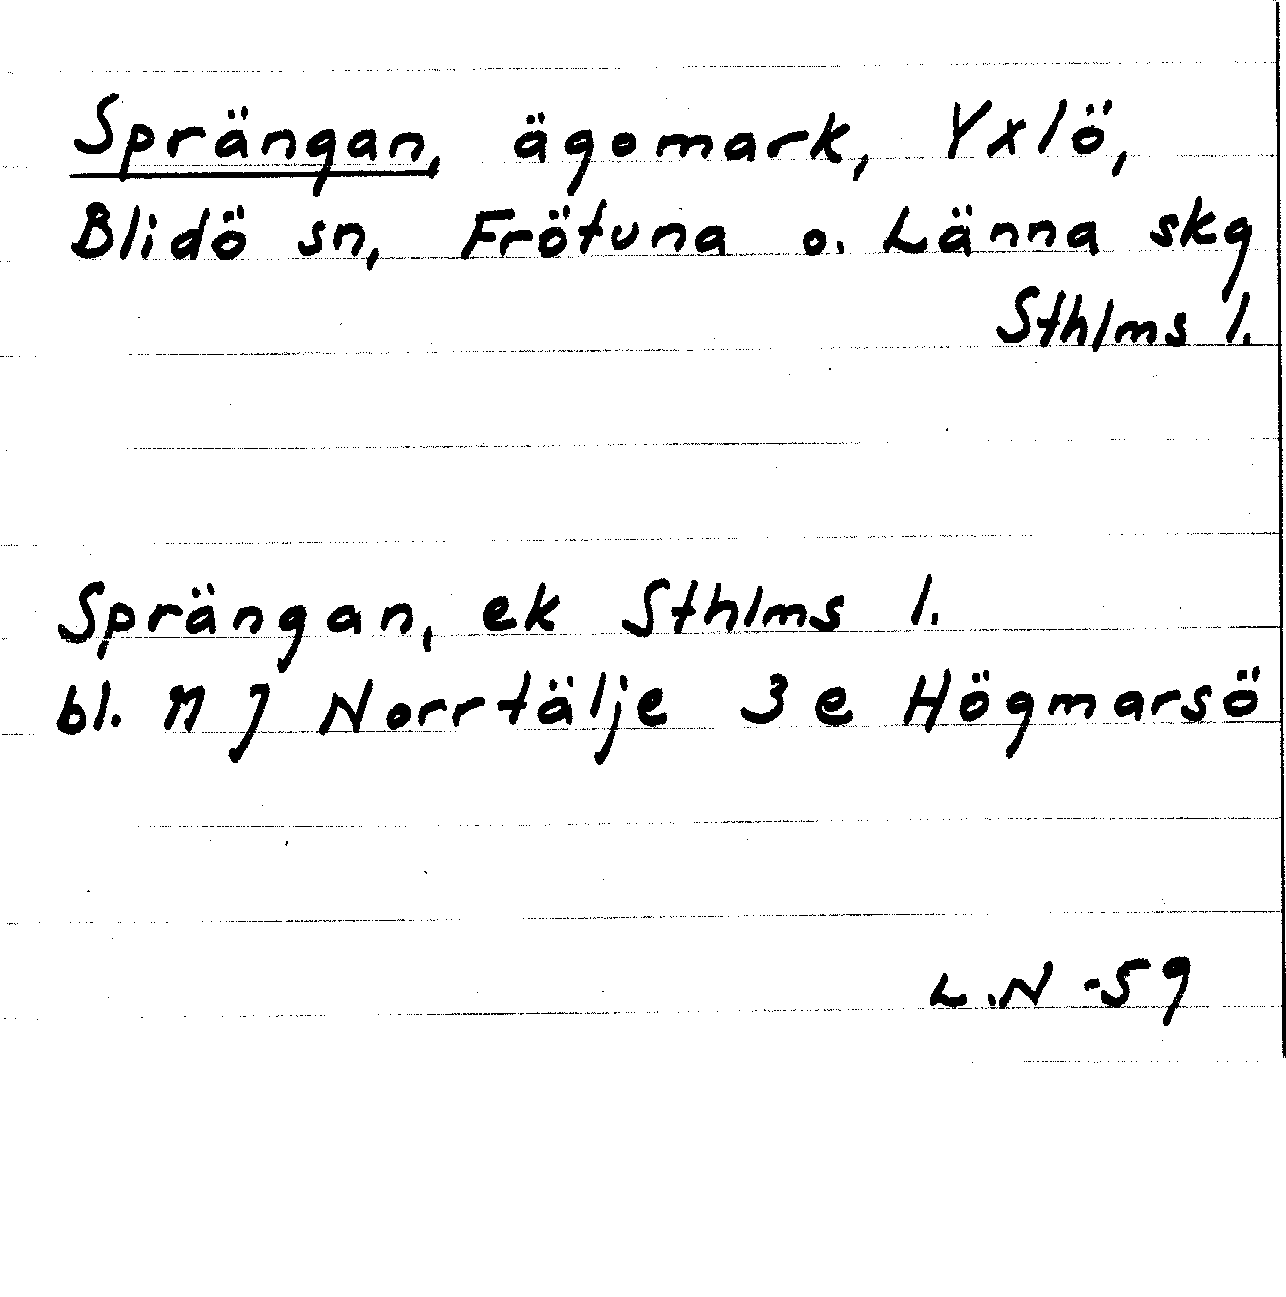 Sprängan, ägomark, Yxlö,
Blidö sn, Frötuna o. Länna skg
Sthlms l.
Sprängan, ek Sthlms l.
bl. 11 J Norrtälje 3 e Högmarsö
L.N -59